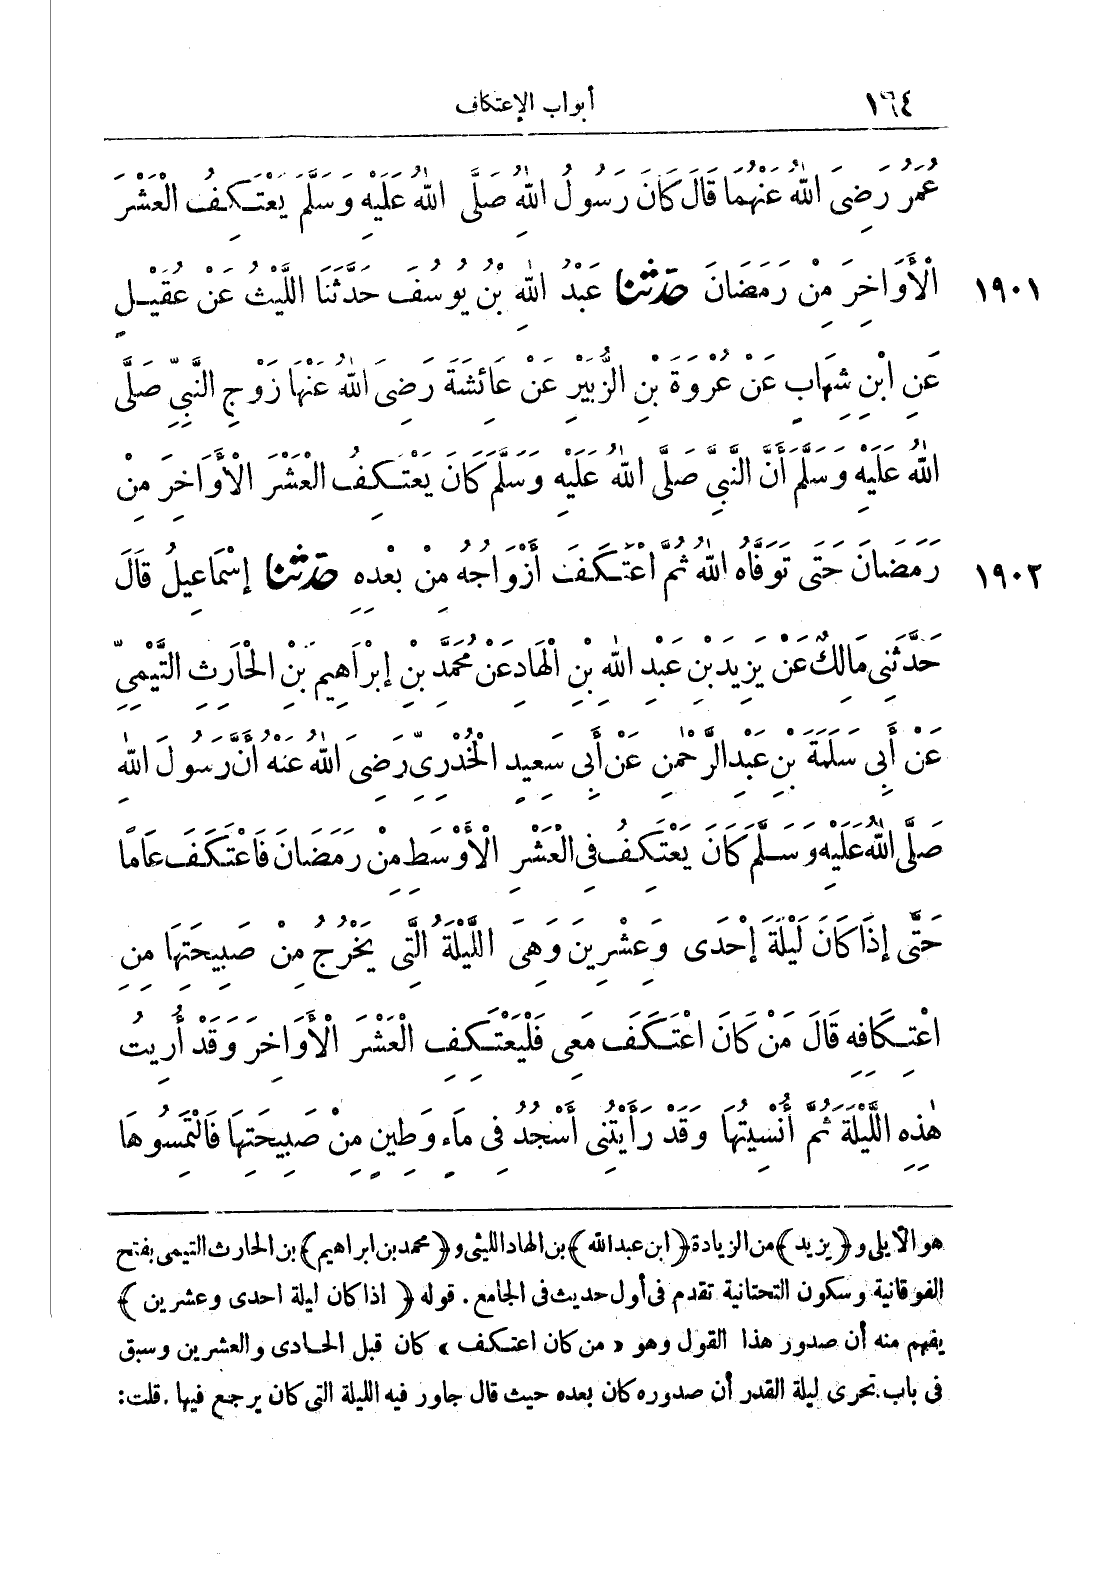 ١٦٤ أبواب الإعتكاف
عُمَرَ رَضِىَ اللّٰهُ عَنْهُمَا قَالَ كَانَ رَسُولُ اللّٰهِ صَلَّى اللّٰهُ عَلَيْهِ وَسَلَّمَ يَعْتَكِفُ الْعَشْرَ
١٩٠١ الْأَوَاخِرَ مِنْ رَمَضَانَ حَدَّثَنَا عَبْدُ اللّٰهِ بْنُ يُوسُفَ حَدَّثَنَا اللَّيْثُ عَنْ عُقَيْلٍ
عَنِ ابْنِ شِهَابٍ عَنْ عُرْوَةَ بْنِ الزُّبَيْرِ عَنْ عَائِشَةَ رَضِىَ اللّٰهُ عَنْهَا زَوْجِ النَّبِيِّ صَلَّى
اللّٰهُ عَلَيْهِ وَسَلَّمَ أَنَّ النَّبِيَّ صَلَّى اللّٰهُ عَلَيْهِ وَسَلَّمَ كَانَ يَعْتَكِفُ الْعَشْرَ الْأَوَاخِرَ مِنْ
١٩٠٢ رَمَضَانَ حَتَّى تَوَفَّاهُ اللّٰهُ ثُمَّ اعْتَكَفَ أَزْوَاجُهُ مِنْ بَعْدِهِ حَدَّثَنَا إِسْمَاعِيلُ قَالَ
حَدَّثَنِى مَالِكٌ عَنْ يَزِيدَ بْنِ عَبْدِ اللّٰهِ بْنِ الْهَادِ عَنْ مُحَمَّدِ بْنِ إِبْرَاهِيمَ بْنِ الْحَارِثِ التَّيْمِىِّ
عَنْ أَبِى سَلَمَةَ بْنِ عَبْدِ الرَّحْمٰنِ عَنْ أَبِى سَعِيدٍ الْخُدْرِىِّ رَضِىَ اللّٰهُ عَنْهُ أَنَّ رَسُولَ اللّٰهِ
صَلَّى اللّٰهُ عَلَيْهِ وَسَلَّمَ كَانَ يَعْتَكِفُ فِى الْعَشْرِ الْأَوْسَطِ مِنْ رَمَضَانَ فَاعْتَكَفَ عَامًا
حَتَّى إِذَا كَانَ لَيْلَةَ إِحْدَى وَعِشْرِينَ وَهِىَ اللَّيْلَةُ الَّتِى يَخْرُجُ مِنْ صَبِيحَتِهَا مِنِ
اعْتِكَافِهِ قَالَ مَنْ كَانَ اعْتَكَفَ مَعِى فَلْيَعْتَكِفِ الْعَشْرَ الْأَوَاخِرَ وَقَدْ أُرِيتُ
هٰذِهِ اللَّيْلَةَ ثُمَّ أُنْسِيتُهَا وَقَدْ رَأَيْتُنِى أَسْجُدُ فِى مَاءٍ وَطِينٍ مِنْ صَبِيحَتِهَا فَالْتَمِسُوهَا
هو الأيلى و(يزيد) من الزيادة (ابن عبدالله) بن الهاد الليثى و(محمد بن ابراهيم) بن الحارث التيمى بفتح
الفوقانية وسكون التحتانية تقدم فى أول حديث فى الجامع. قوله (اذا كان ليلة احدى وعشرين)
يفهم منه أن صدور هذا القول وهو «من كان اعتكف» كان قبل الحادى والعشرين وسبق
فى باب تحرى ليلة القدر أن صدوره كان بعده حيث قال جاور فيه الليلة التى كان يرجع فيها. قلت: